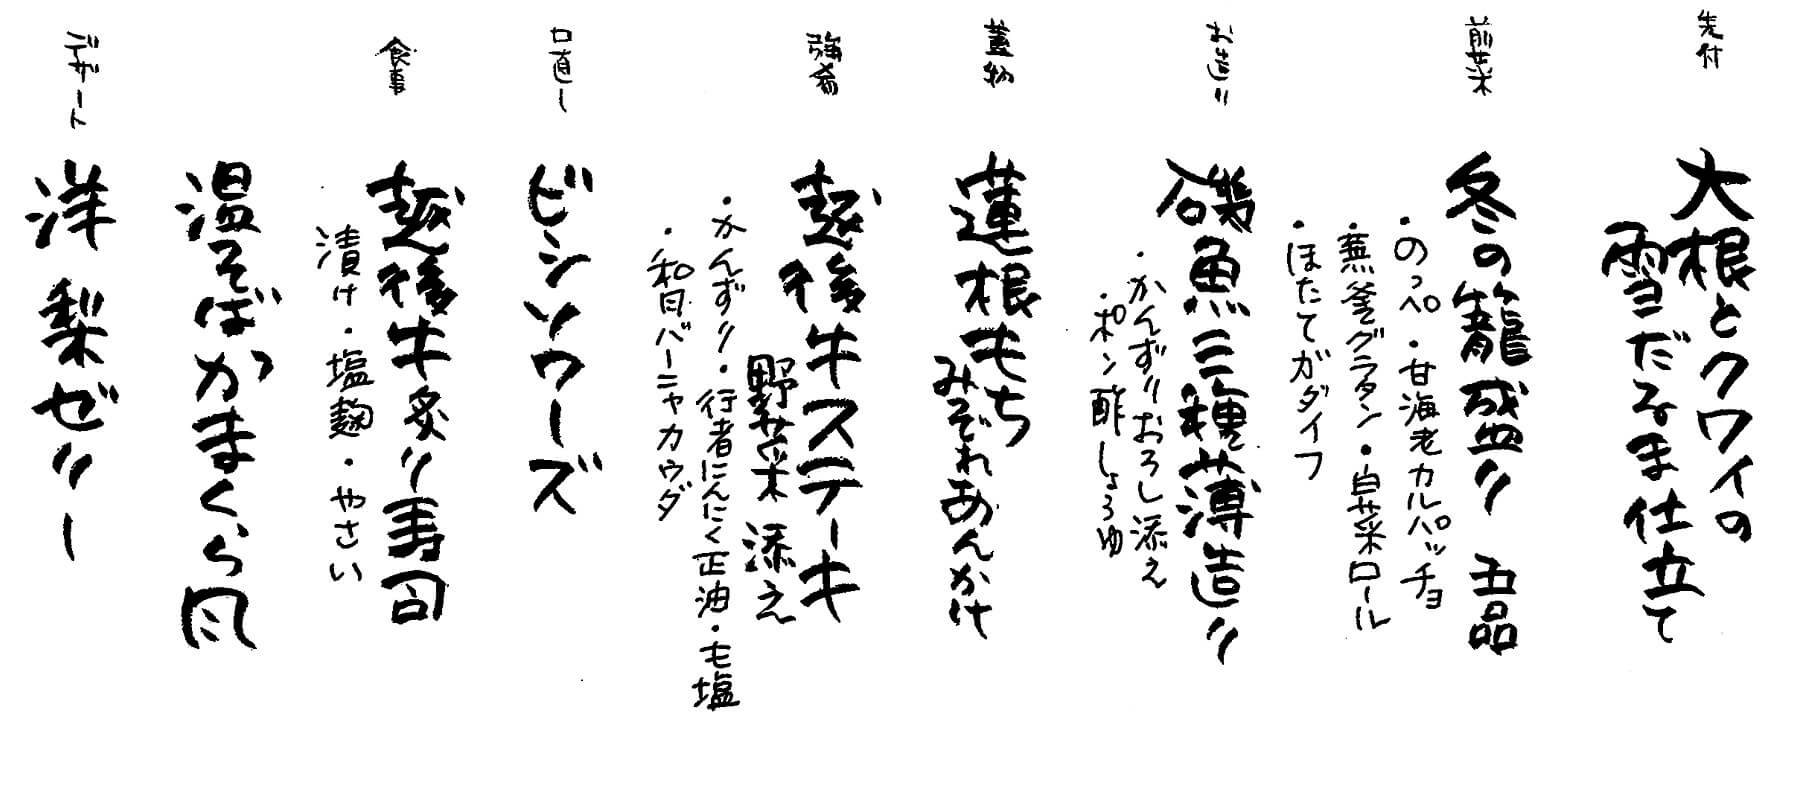 先付
大根とクワイの
雪だるま仕立て
前菜
冬の籠盛り 五品
・のっぺ・甘海老カルパッチョ
・蕪釜グラタン・白菜ロール
・ほたてカダイフ
お造り
磯魚三種薄造り
・かんずりおろし添え
・ポン酢しょうゆ
蓋物
蓮根もち
みぞれあんかけ
強肴
越後牛ステーキ
野菜添え
・かんずり・行者にんにく正油・も塩
・和風バーニャカウダ
口直し
ビシソワーズ
食事
越後牛炙り寿司
漬け・塩麹・やさい
温そばかまくら風
デザート
洋梨ゼリー